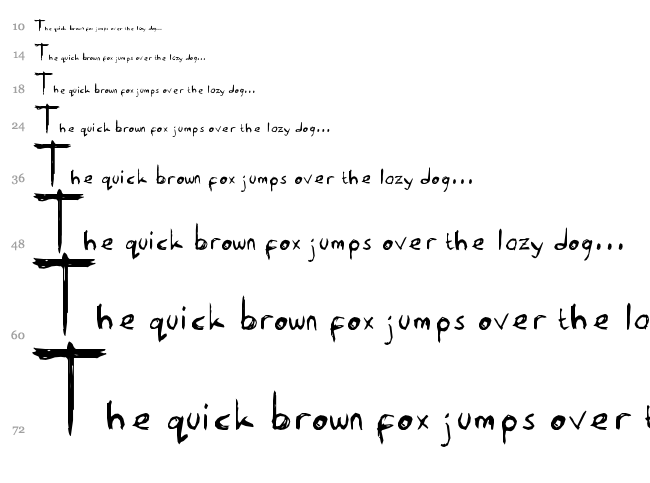 10 The quick brown fox jumps over the lazy dog...
14 The quick brown fox jumps over the lazy dog...
18 The quick brown fox jumps over the lazy dog...
24 The quick brown fox jumps over the lazy dog...
36 The quick brown fox jumps over the lazy dog...
48 The quick brown fox jumps over the lazy dog...
60 The quick brown fox jumps over the la
72 The quick brown fox jumps over t